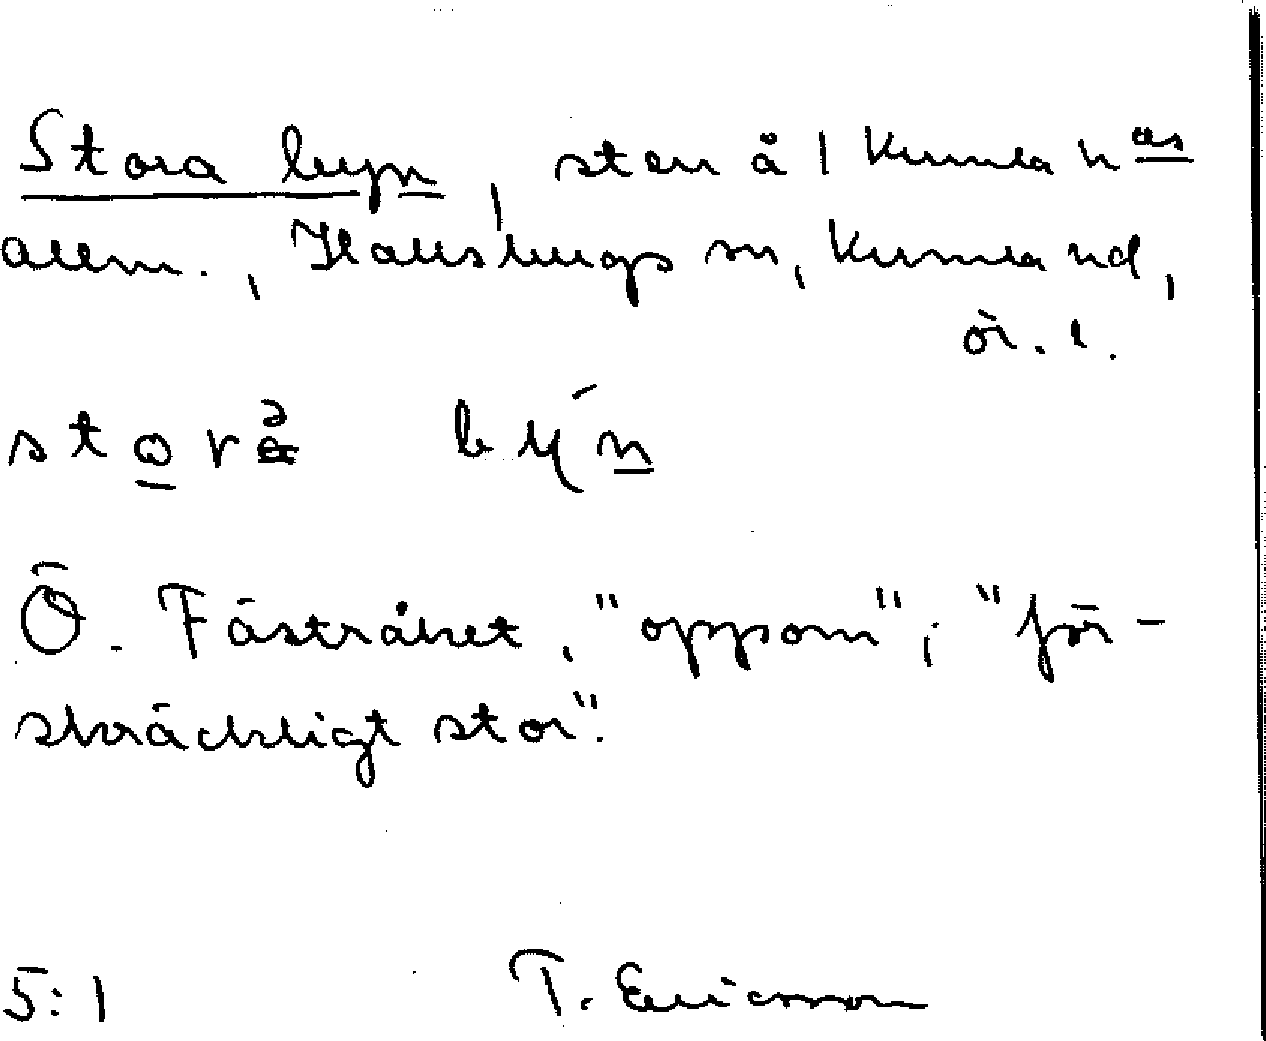 Stora byn, sten å 1 Kumla hds
allm., Hallsbergs sn, Kumla hd,
ör. l.
storə bý n
Ö. Fästråket, "oppom"; "för-
skräckligt stor".
5:1 T. Ericsson